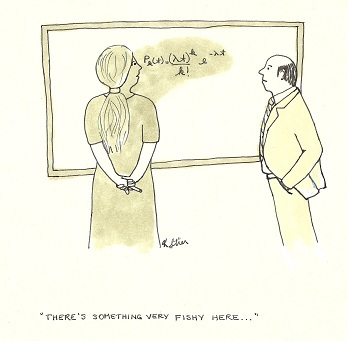 P_k(t) = (λt)^k / k! e^-λt
"THERE'S SOMETHING VERY FISHY HERE..."